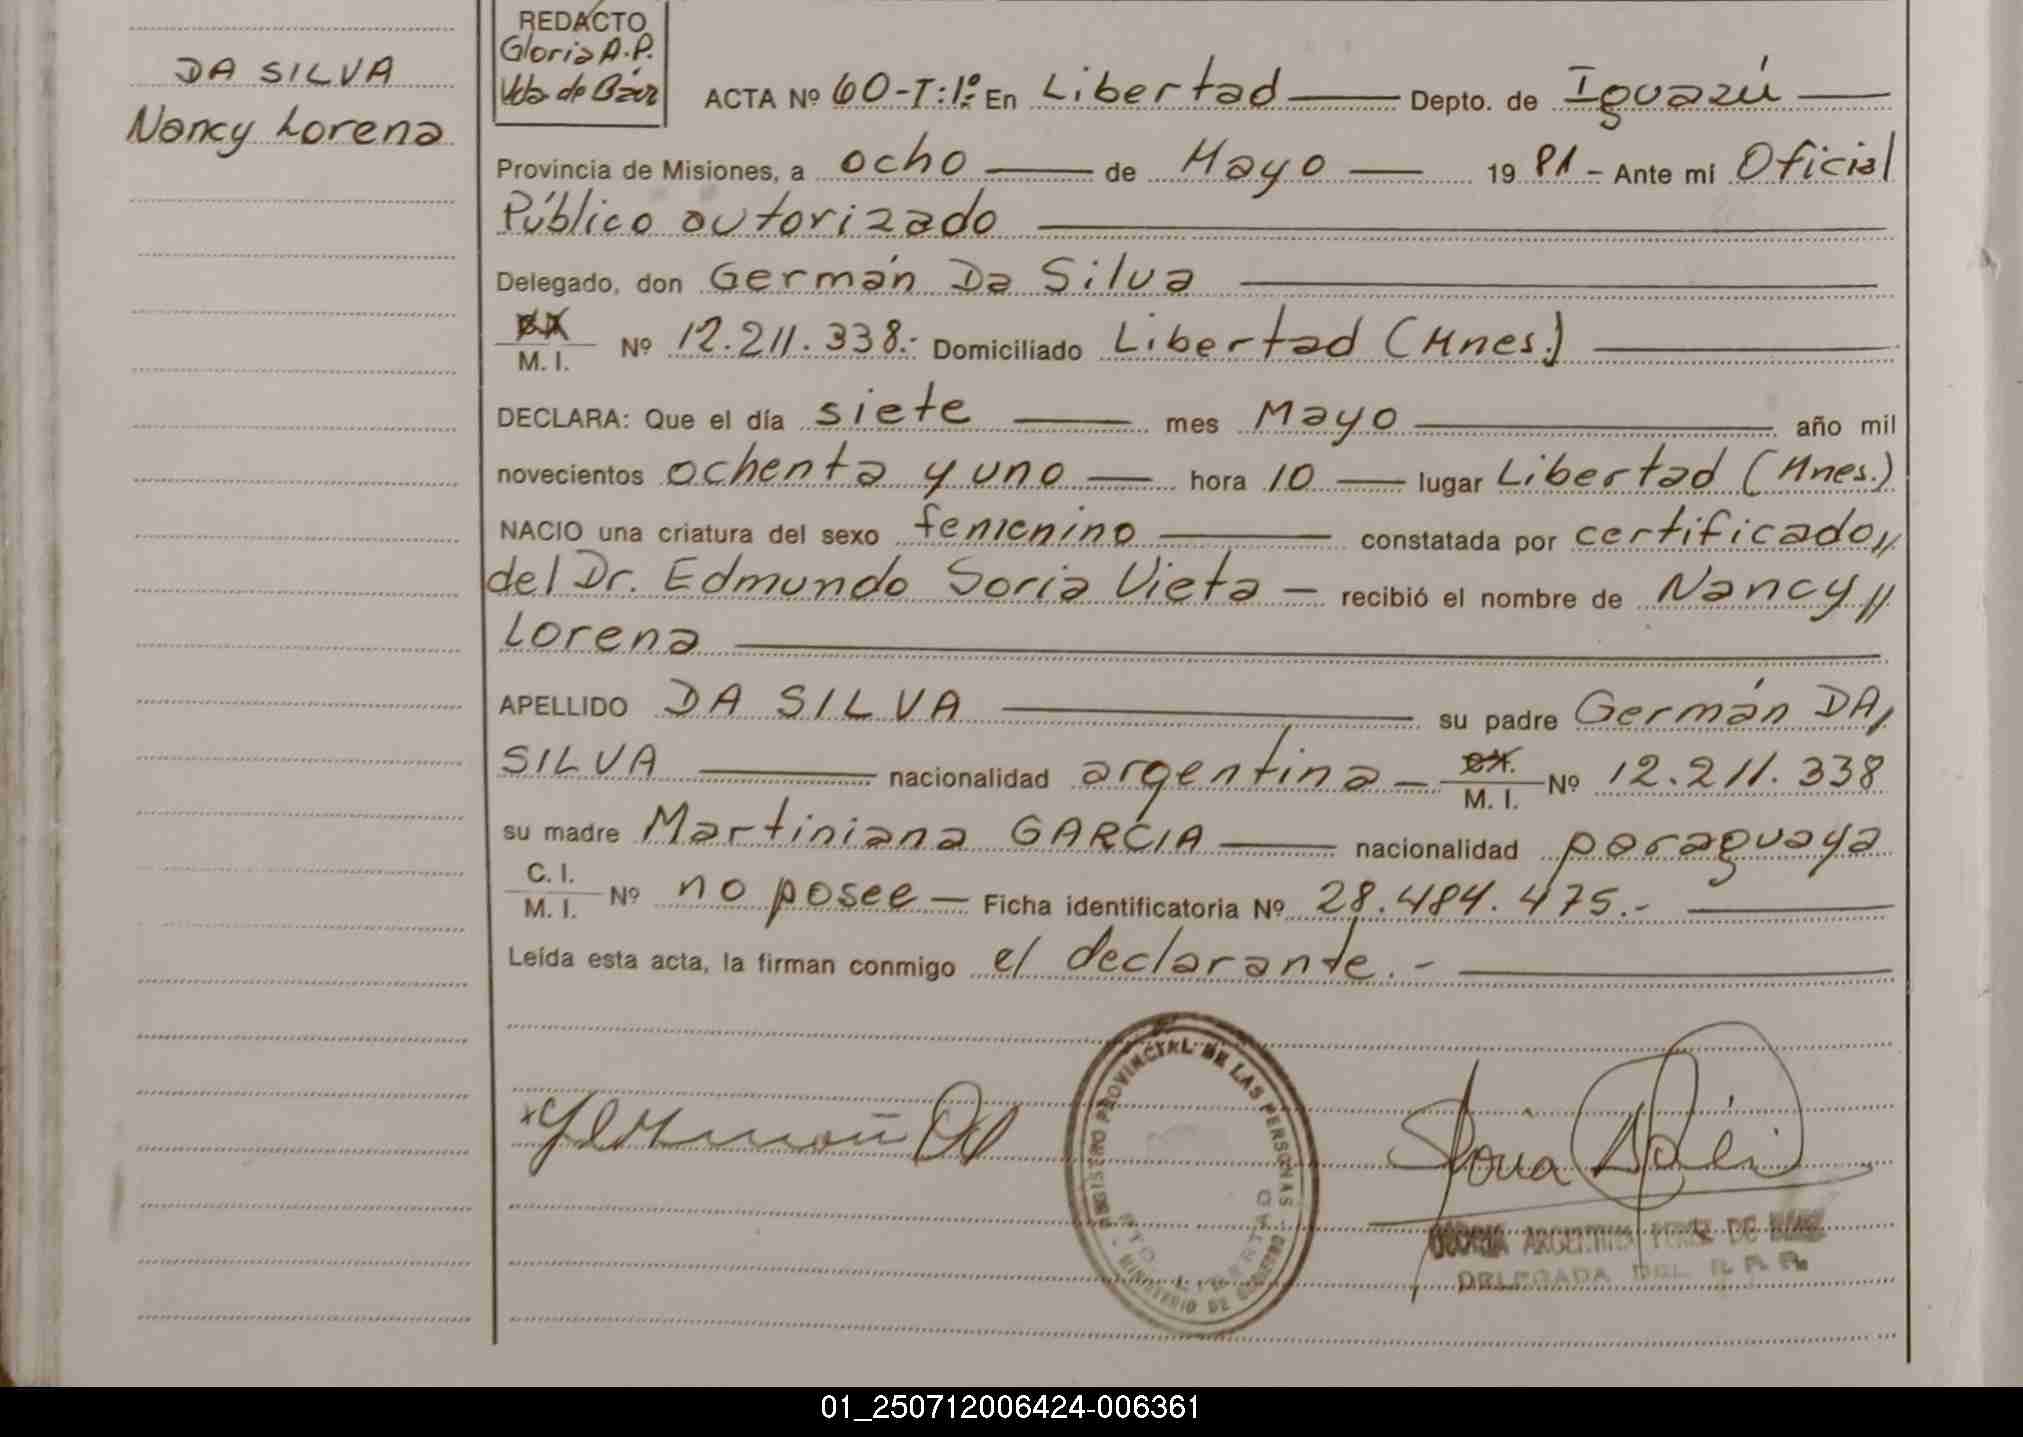 DA SILVA
Nancy Lorena
REDACTO
Gloria A.P.
Vda de Báez
ACTA Nº 60-T:1º: En Libertad Depto. de Iguazú
Provincia de Misiones, a ocho de Mayo 1981 - Ante mí Oficial
Público autorizado
Delegado, don Germán Da Silva
M. I. Nº 12.211.338.- Domiciliado Libertad (Mnes.)
DECLARA: Que el día siete mes Mayo año mil
novecientos ochenta y uno hora 10 lugar Libertad (Mnes.)
NACIO una criatura del sexo femenino constatada por certificado,,
del Dr. Edmundo Soria Vieta — recibió el nombre de Nancy,,
Lorena
APELLIDO DA SILVA su padre Germán DA,
SILVA nacionalidad argentina — C.I. M. I. Nº 12.211.338
su madre Martiniana GARCÍA nacionalidad paraguaya
C. I. M. I. Nº no posee — Ficha identificatoria Nº 28.484.475.-
Leída esta acta, la firman conmigo el declarante.-
REGISTRO PROVINCIAL DE LAS PERSONAS
MINISTERIO DE GOBIERNO
LIBERTAD
ARGENTINA PEREZ DE
DELEGADA DEL R. P. P.
01_250712006424-006361